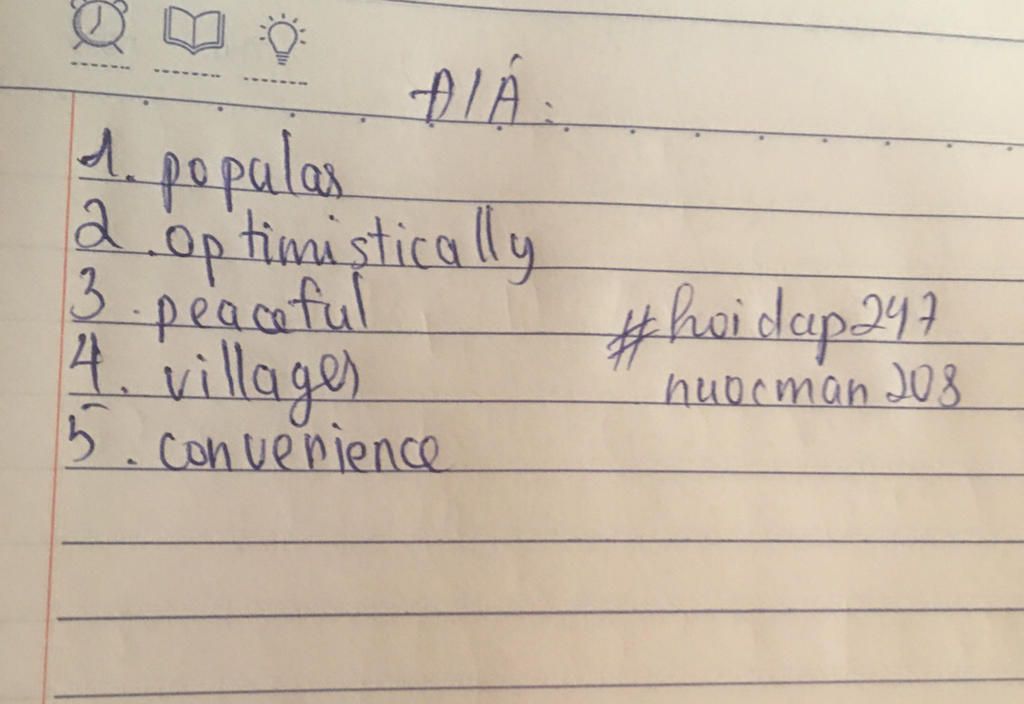 Đ/Á:
1. popular
2. optimistically
3. peaceful
4. villages
5. convenience
#hoidap247
nuocman208